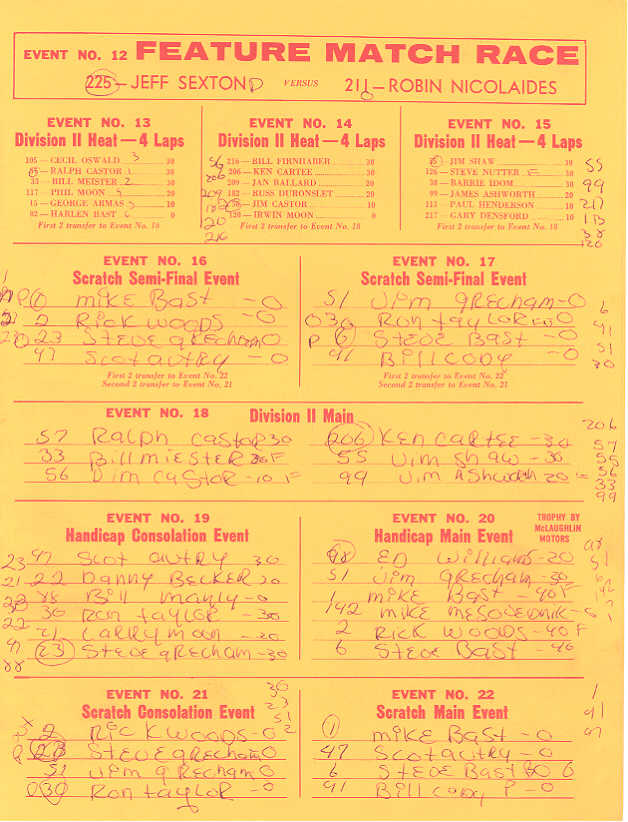 EVENT NO. 12 FEATURE MATCH RACE
225 — JEFF SEXTON VERSUS 211 — ROBIN NICOLAIDES
EVENT NO. 13
Division II Heat — 4 Laps
105 — CECIL OSWALD 3 30
RALPH CASTOR 1 30
33 — BILL MEISTER 2 30
117 — PHIL MOON 20
15 — GEORGE ARMAS 10
82 — HARLEN BAST 0
First 2 transfer to Event No. 18
EVENT NO. 14
Division II Heat — 4 Laps
216 — BILL FIRNHABER 30
206 — KEN CARTEE 30
209 — JAN BALLARD 20
182 — RUSS DURONSLET 20
JIM CASTOR 10
120 — IRWIN MOON 0
First 2 transfer to Event No. 18
56
206
209
182
20
216
EVENT NO. 15
Division II Heat — 4 Laps
JIM SHAW 30
126 — STEVE NUTTER 30
38 — BARRIE IDOM 30
99 — JAMES ASHWORTH 20
113 — PAUL HENDERSON 10
217 — GARY DENSFORD 10
First 2 transfer to Event No. 18
55
99
217
113
38
126
EVENT NO. 16
Scratch Semi-Final Event
1 MIKE BAST - 0
2 RICK WOODS - 0
23 STEVE GRECHAM 0
47 SCOT AUTRY - 0
First 2 transfer to Event No. 22
Second 2 transfer to Event No. 21
EVENT NO. 17
Scratch Semi-Final Event
51 Jim GRECHAM - 0
030 RON TAYLOR - 0
P 6 STEVE BAST - 0
91 BILL CODY - 0
First 2 transfer to Event No. 22
Second 2 transfer to Event No. 21
6
91
51
30
EVENT NO. 18 Division II Main
57 RALPH CASTOR 30
33 BILL MIESTER 30 F
56 JIM CASTOR - 10 F
206 KEN CARTEE - 30
55 Jim SHAW - 30
99 Jim ASHWORTH 20
206
57
55
56
33
99
EVENT NO. 19
Handicap Consolation Event
47 SCOT AUTRY 30
22 DANNY BECKER 20
88 BILL MANLY - 0
30 RON TAYLOR - 30
91 LARRY MOON - 20
23 STEVE GRECHAM - 30
EVENT NO. 20
Handicap Main Event
TROPHY BY
McLAUGHLIN
MOTORS
98 ED WILLIAMS - 20
51 Jim GRECHAM - 30
1 MIKE BAST - 40 F
142 MIKE
2 RICK WOODS - 40 F
6 STEVE BAST - 40
EVENT NO. 21
Scratch Consolation Event
2 RICK WOODS - 0
23 STEVE GRECHAM 0
51 Jim GRECHAM 0
030 RON TAYLOR - 0
30
23
51
2
EVENT NO. 22
Scratch Main Event
1 MIKE BAST - 0
47 SCOT AUTRY - 0
6 STEVE BAST
91 BILL CODY P - 0
1
91
47